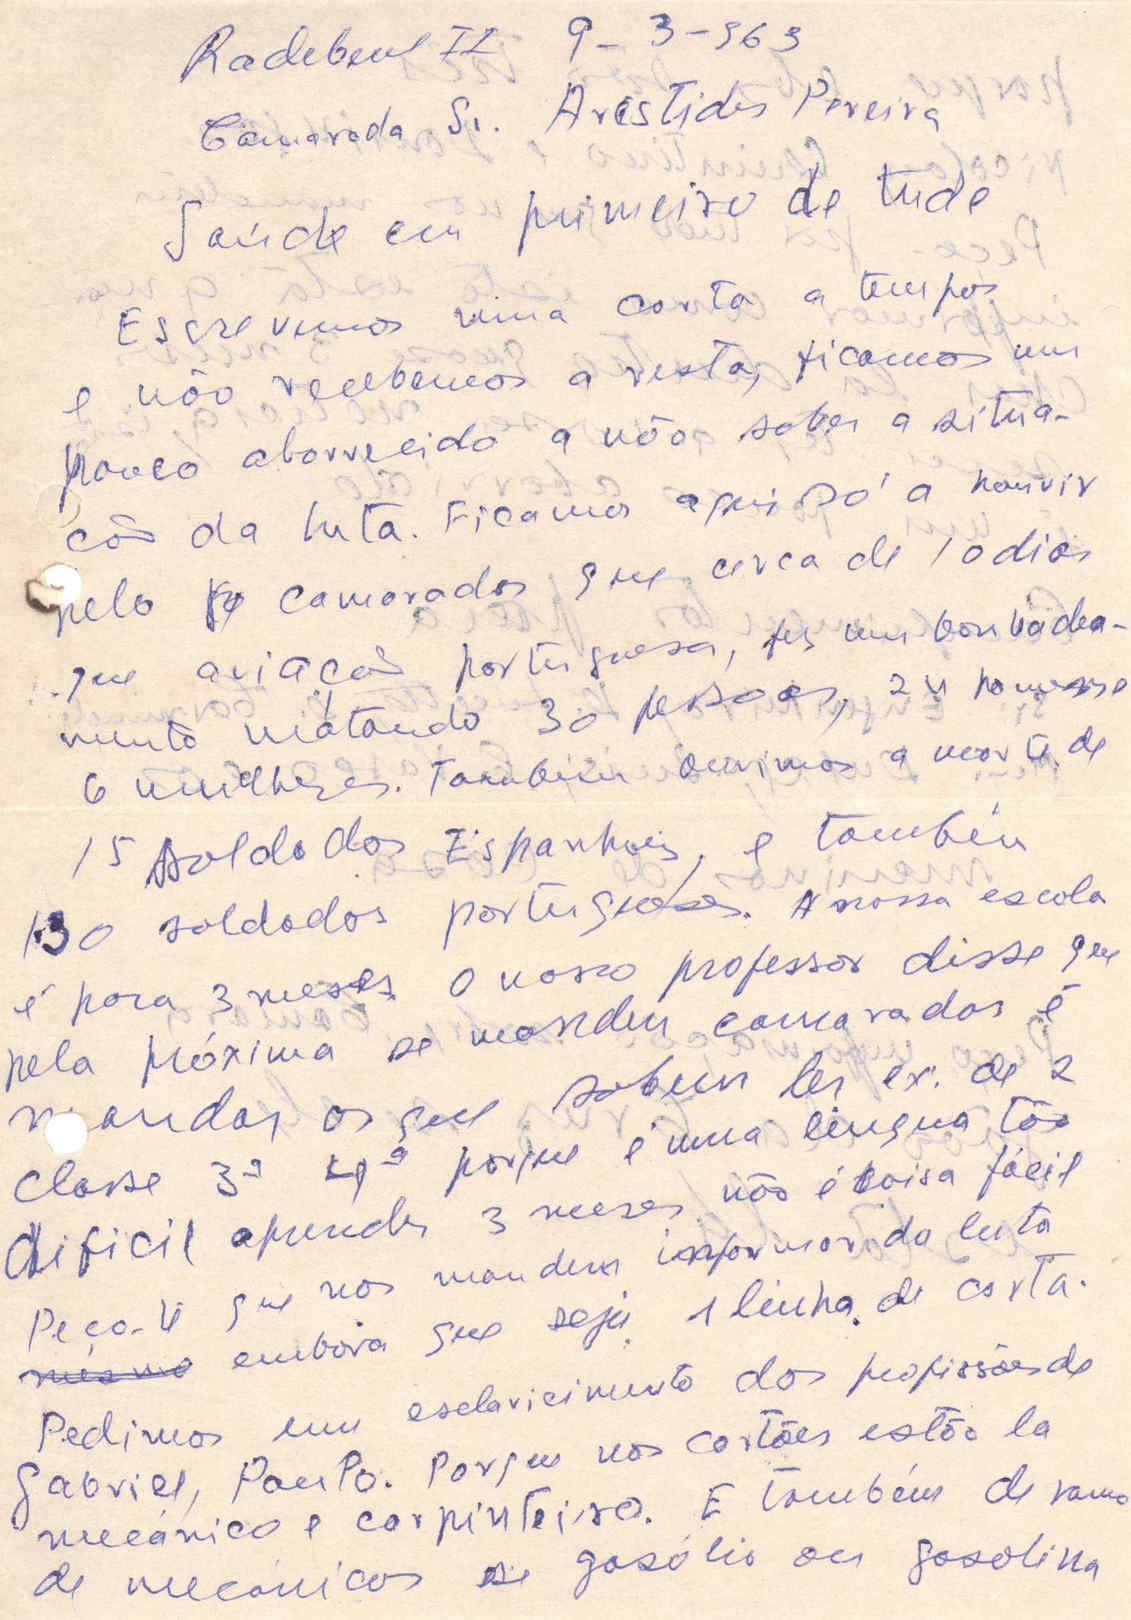 Radebeul II 9-3-963
Camarada Sr. Arestides Pereira
Saúde em primeiro de tude
Escrevemos uma carta a tempos
e não recebemos a resta, ficamos um
pouco aborrecido a não saber a situa-
cão da luta. Ficamos aqui só a houvir
pelo camarados que cerca de 10 dias
que aviação portuguesa, fes um bonbadea-
mento matando 30 pessoas, 24 homens e
6 mulheres. Também ouvimos a morte de
15 soldados Espanhois, e também
130 soldados portugueses. A nossa escola
é para 3 meses. O nosso professor disse que
pela próxima se mandem camarados é
mandar os que sabem ler ex. de 2
classe 3ª 4ª porque é uma lingua tão
dificil aprender 3 meses não é coisa fácil
Peço-te que nos mandem informar da luta
mesmo embora que seje 1 linha de carta.
Pedimos um esclaricimento dos profissões de
Gabriel, Paulo. Porque nos cartões estão la
mecánico e carpinteiro. E também de ramo
de mecánicos se gasólio ou gasolina